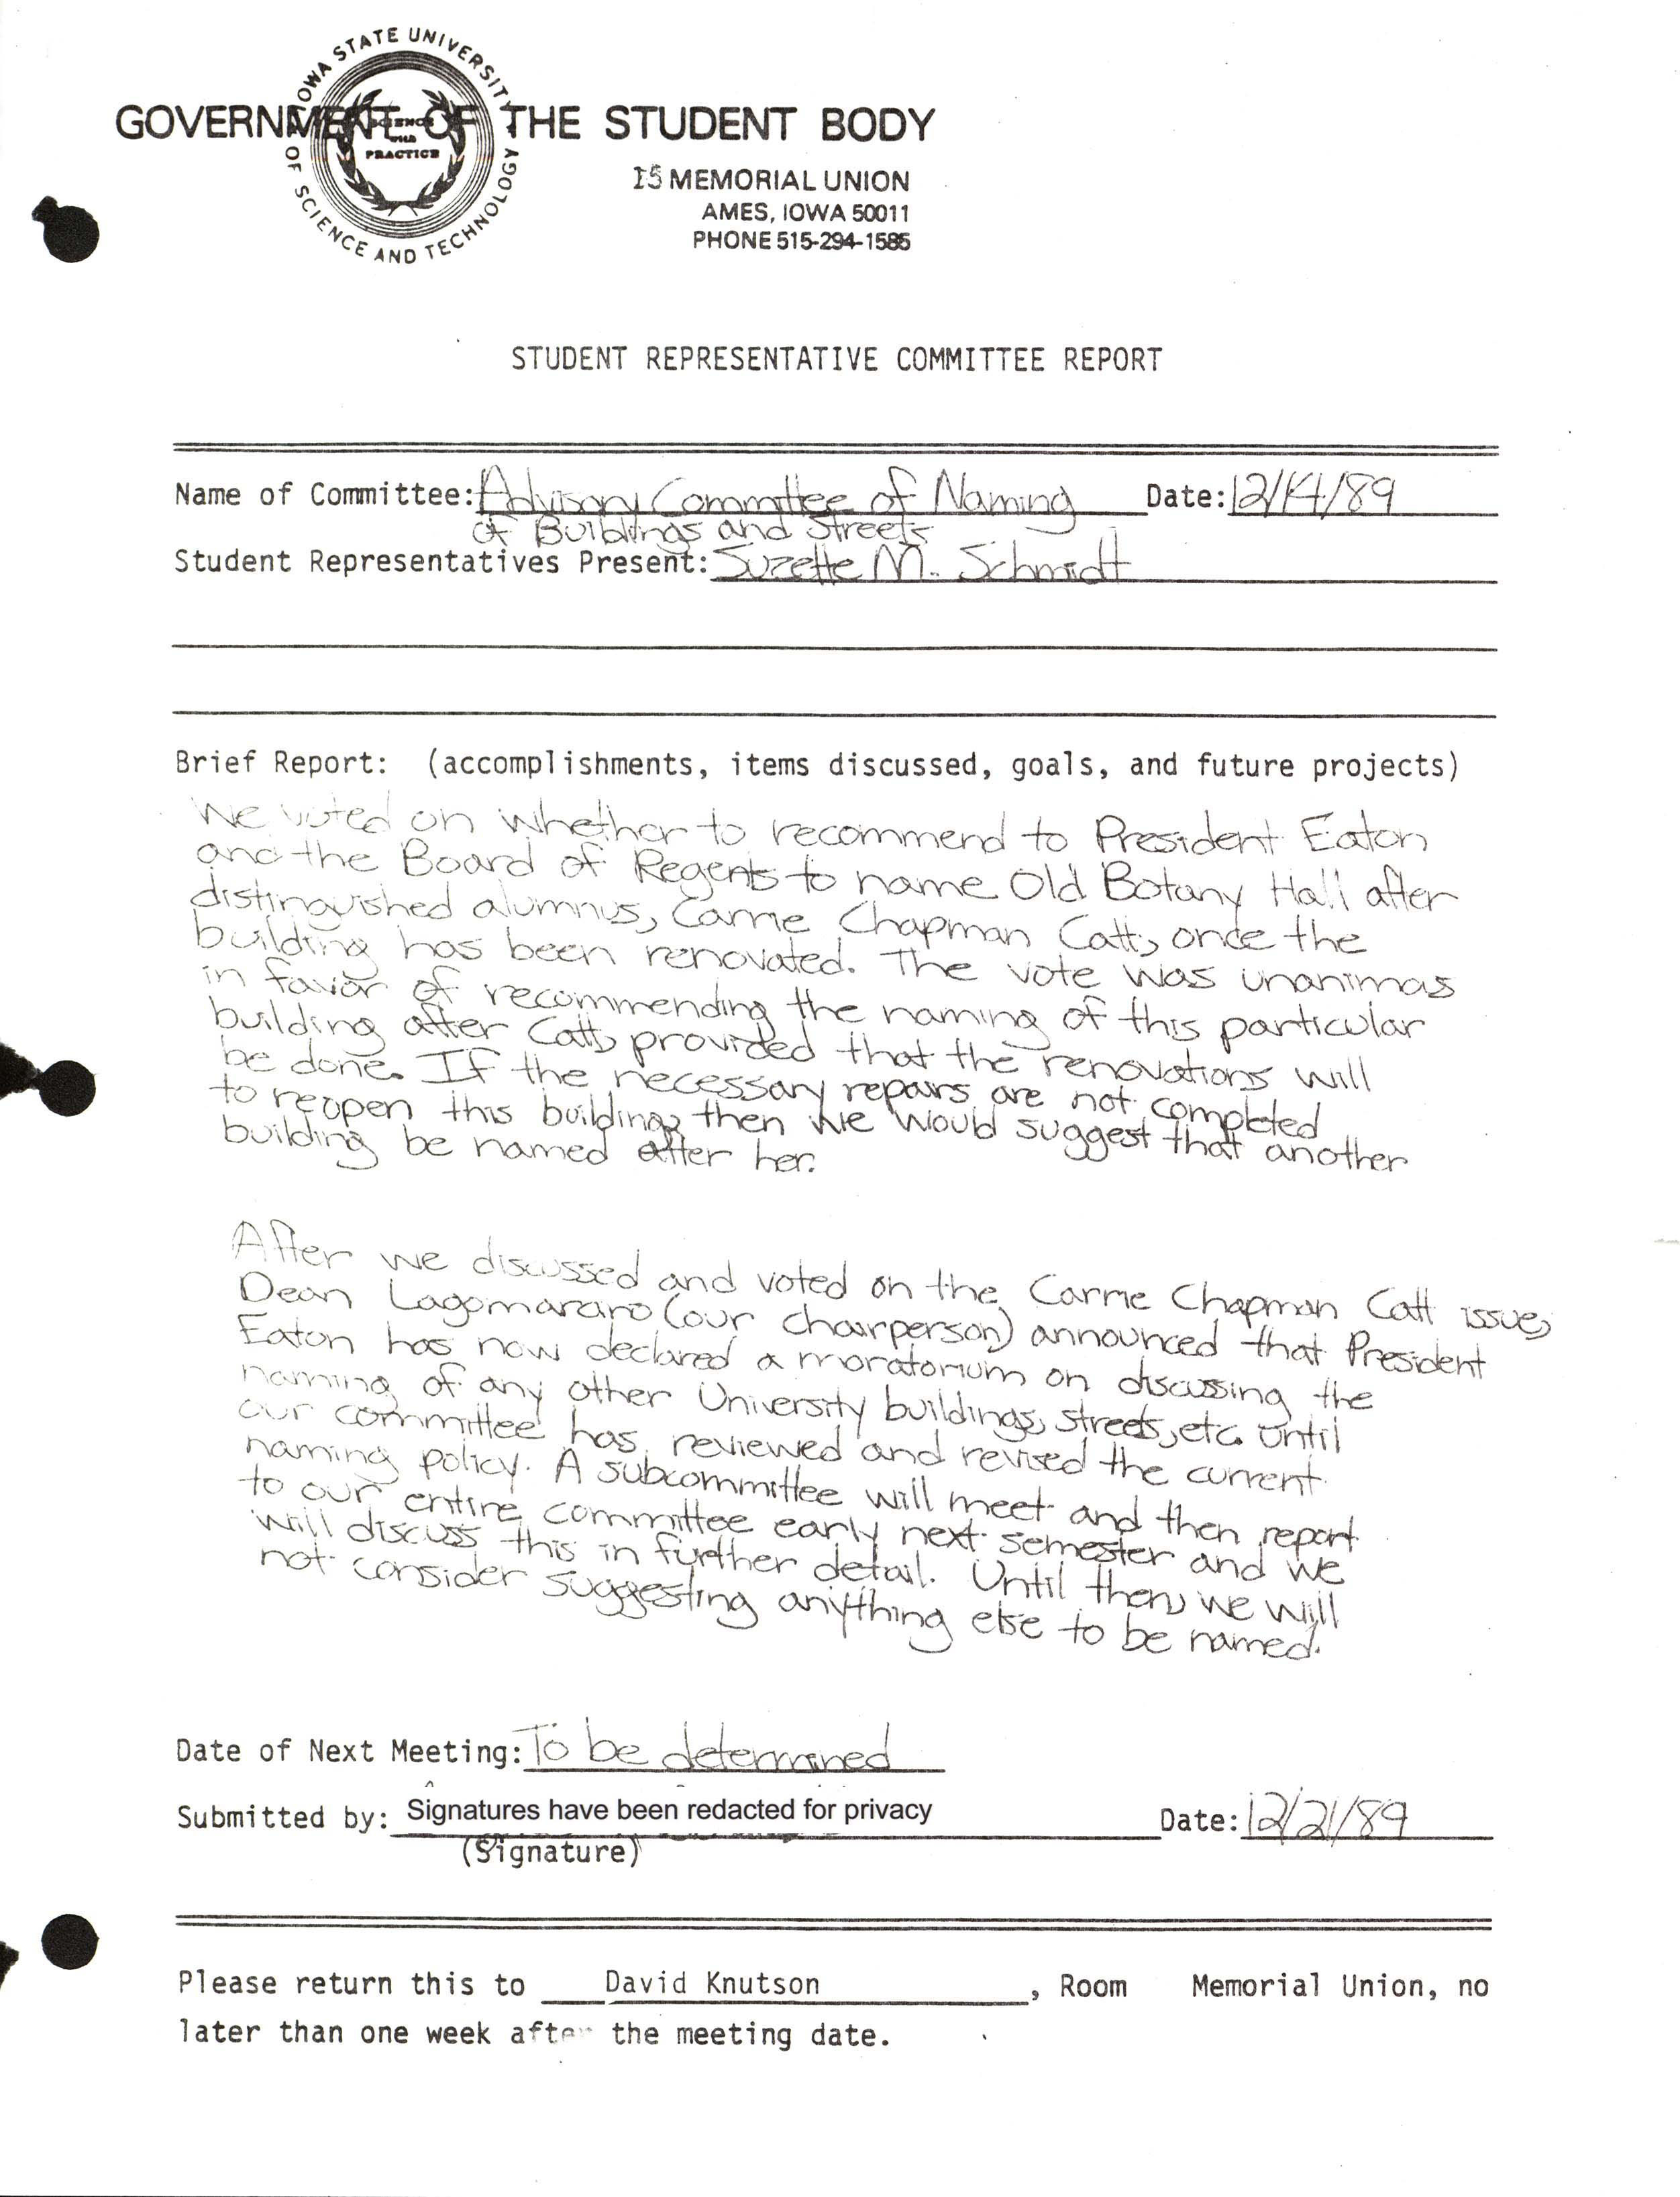 IOWA STATE UNIVERSITY
OF SCIENCE AND TECHNOLOGY
SCIENCE
WITH
PRACTICE
GOVERNMENT OF THE STUDENT BODY
15 MEMORIAL UNION
AMES, IOWA 50011
PHONE 515-294-1585
STUDENT REPRESENTATIVE COMMITTEE REPORT
Name of Committee: Advisory Committee of Naming Date: 12/14/89
of Buildings and Streets
Student Representatives Present: Suzette M. Schmidt
Brief Report: (accomplishments, items discussed, goals, and future projects)
We voted on whether to recommend to President Eaton
and the Board of Regents to name Old Botany Hall after
distinguished alumnus, Carrie Chapman Catt, once the
building has been renovated. The vote was unanimas
in favor of recommending the naming of this particular
building after Catt, provided that the renovations will
be done. If the necessary repairs are not completed
to reopen this building, then we would suggest that another
building be named after her.
After we discussed and voted on the Carrie Chapman Catt issue,
Dean Lagomarcino (our chairperson) announced that President
Eaton has now declared a moratorium on discussing the
naming of any other University buildings, streets, etc. until
our committee has reviewed and revised the current
naming policy. A subcommittee will meet and then report
to our entire committee early next semester and we
will discuss this in further detail. Until then, we will
not consider suggesting anything else to be named.
Date of Next Meeting: To be determined
Submitted by: Signatures have been redacted for privacy Date: 12/21/89
(Signature)
Please return this to David Knutson, Room Memorial Union, no
later than one week after the meeting date.